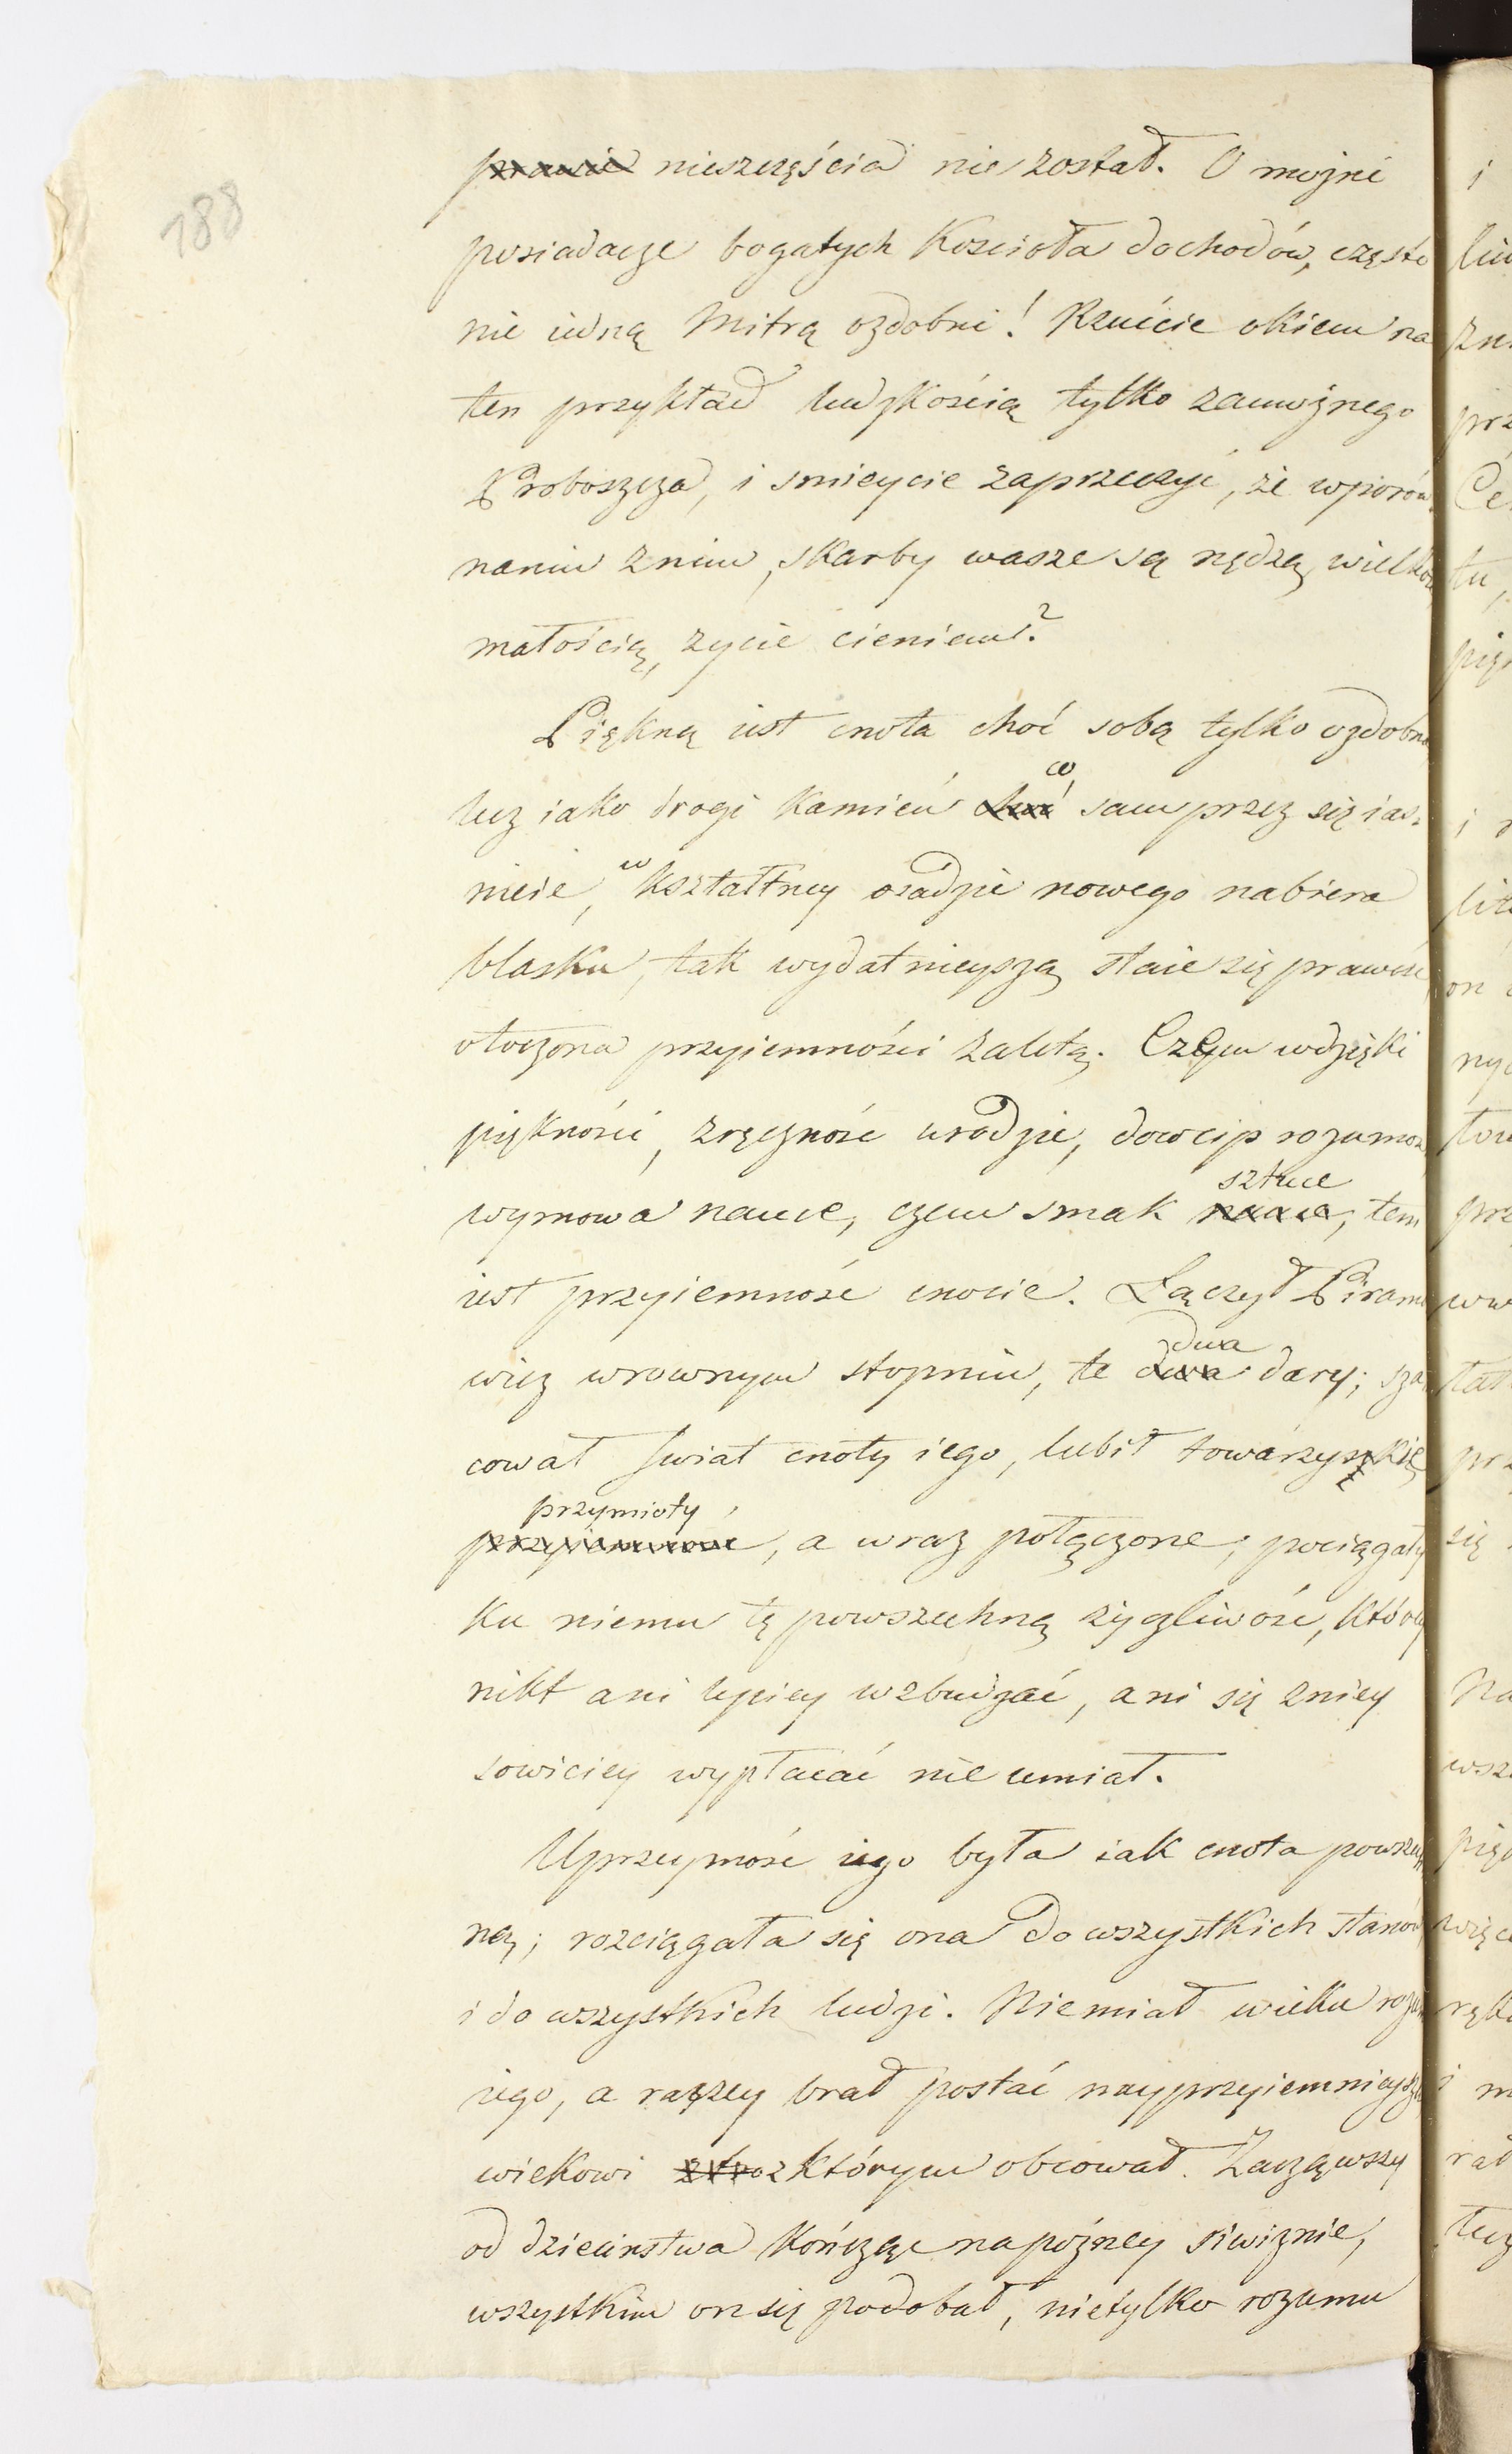 188
~~prawie~~ nieszczęścia nie został. O mojni
posiadacze bogatych Kościoła dochodów, często
nie iedną Mitrą ozdobni! Rzućcie okiem na
ten przykład ludzkością tylko zamożnego
Proboszcza, i smieycie zaprzeczyć, że wporów
naniu znim, skarby wasze są nędzą, wielkoś
małością, zycie cieniem?
Piękną iest cnota choć sobą tylko ozdobna
lecz iako drogi Kamień co sam przez się ias-
nieie, w kształtney osadzie nowego nabiera
blasku, tak wydatnieyszą staie się prawość
otoczona przyiemności zaletą. Czem wdzięki
piękności, zręczność urodzie, dowcip rozumow
wymowa nauce, czem smak ~~nauce~~ sztuce, tem
iest przyiemność cnocie. Łączył Piramo
wicz wrownym stopniu, te ~~dwa~~ dwa dary; sza
cował swiat cnoty iego, lubił towarzyskie
~~przyiemność~~ przymioty, a wraz połączone, pociągały
ku niemu tę powszechną życzliwość, którey
nikt ani lepiey wzbudzać, ani się zniey
sowiciey wypłacać nie umiał.
Uprzeymość iego była iak cnota powszech
ną; rozciągała się ona do wszystkich stanów
i do wszystkich ludzi. Niemiał wieku rozum
iego, a raczey brał postać nayprzyiemnieyszą
wiekowi z którym obcował. Zacząwszy
od dzieciństwa kończąc na pózney siwiznie,
wszystkim on się podobał, nietylko rozumu